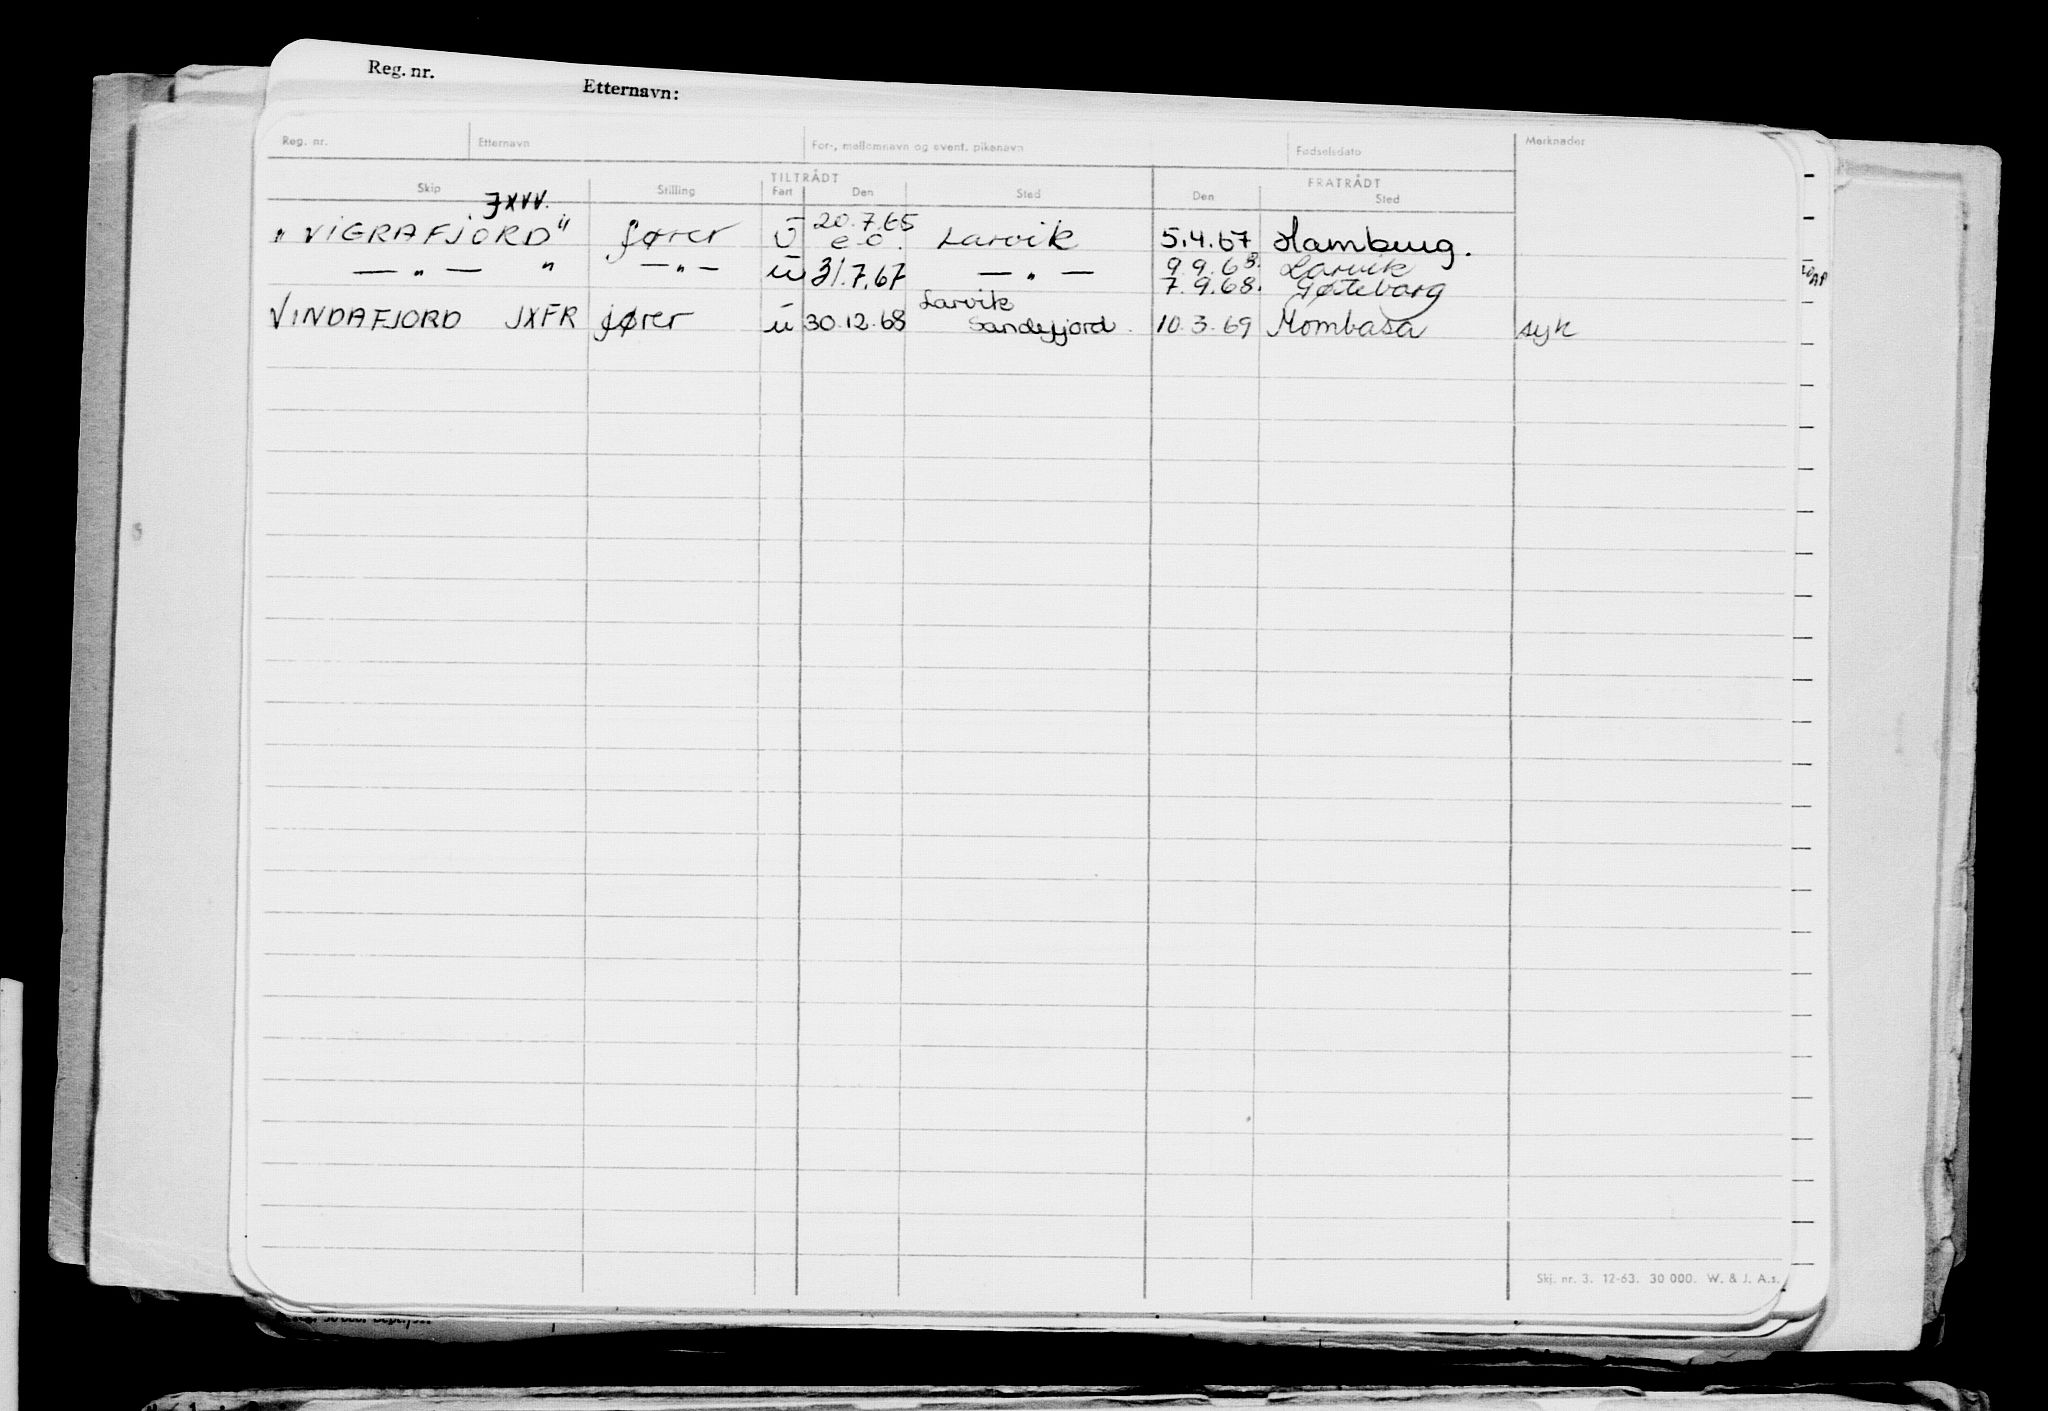 Reg. nr.
Etternavn:
Reg. nr. Etternavn For-, mellomnavn og event. pikenavn Fødselsdato Merknader
TILTRÅDT FRATRÅDT
Skip Stilling Fart Den Sted Den Sted
JXVV.
20.7.65
"VIGRAFJORD" fører U e.o. Larvik 5.4.67 Hamburg.
9.9.68. Larvik
— " — " — " — u 31.7.67 — " —
7.9.68. Gøteborg
Larvik
VINDAFJORD JXFR fører u 30.12.68 Sandefjord. 10.3.69 Mombasa syk
Skj. nr. 3. 12-63. 30 000. W. & J. A.s.